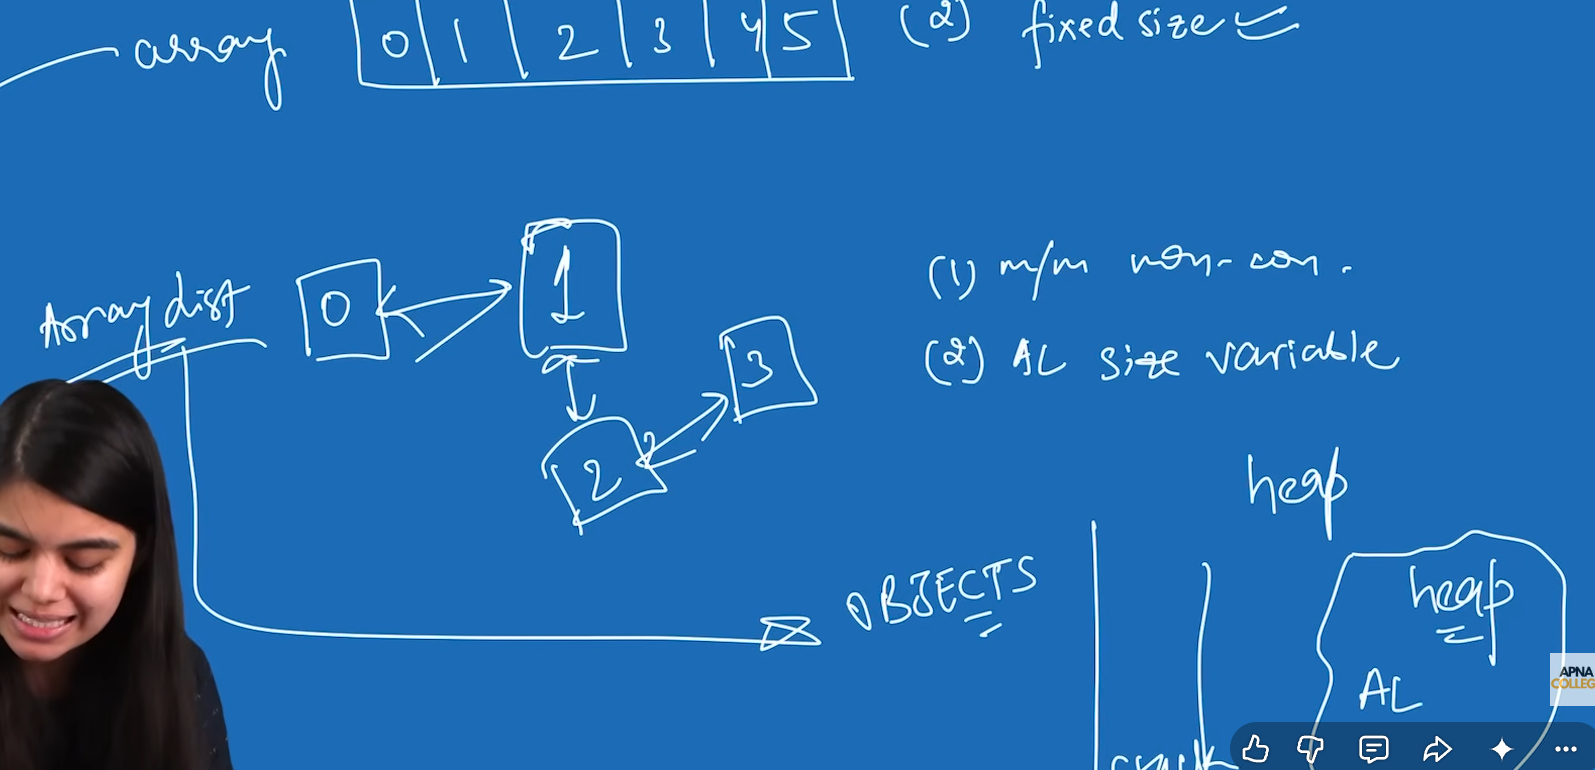 array 0 1 2 3 4 5 (2) fixed size
ArrayList 0 1 2 3
(1) m/m non-con.
(2) AL size variable
heap
OBJECTS
heap
AL
APNA
COLLEG